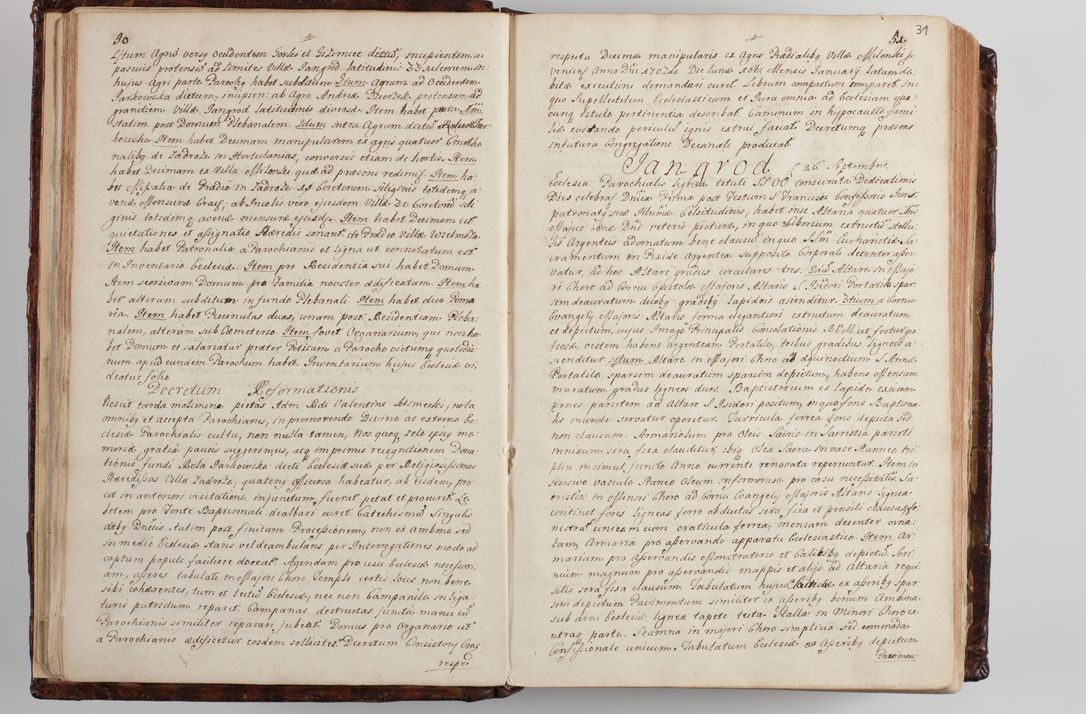 30
Istum Agrū versq Occidentem Gorlis et Gizmice dictū, incipientem a
pascuis protensū ad Limites Villæ Jangrod latitudinis 33 sulcorum in
hujus Agri parte Parochq habet subditum. Item Agrum ad Occidentem
Jankowska dictum, incipien: ab Agro Andreæ protensum ad
graniciem Villæ Jangrod latitudinis diversæ. Item habet
statim post Domum Plebanalem. Idum intra Agrum dictū
kowska. Item habet Decimam manipularem ex agris quatuor Cmetho
nalibq de Zadroze in Hortulanias, conversis etiam de hortis. Item
habet Decimam ex Villa Milonki quæ ad præsens redimit. Item ha
bet Missalia de Prædio in Zadroze Coretorum Siliginis totidemq a
venæ Mensuræ Crac, ab Incolis vero ejusdem Villæ 30 Coretorū Sili
ginis totidemq avenæ mensuræ ejusd. Item habet Decimam
quietationes et assignatio Hæredis sonant de Prædio Villæ Wzelmoza
Item habet Patronalia a Parochianis et Ligna ut connotatum est
in Inventario Ecclesiæ. Item pro Residentia sui habet Domum.
Item seorsivam Domum pro familia noviter ædificatam. Item ha
bet alterum subditum in fundo Plebanali. Item habet duo Poma
ria. Item habet Piscinulas duas, unam post Residentiam Pleba
nalem, alteram sub Cæmeterio. Item fovet Organarium, qui non ha
bet Domum et salariatur præter Petitam a Parocho victumq quotidia
num apud eundem Parochum habet. Inventarium hujus Ecclesiæ vi
deatur folio
Decretum Reformationis
Nescit tarda molimina pietas Adm Rndi Valentini nota
omnibq et accepta Parochianis, in promovendo Divino ac externo Ec
clesiæ Parochialis cultu, non nulla tamen, Nos quoq zelo ipsiq me
moriæ gratiâ paucis suggerimus, utq imprimis recognitionem Dona
tionis fundi Rola Jankowska dicti Ecclesiæ suæ per Religiosissimas
Hæredissas Villæ Zadroze, quatenq Officiosa habeatur, ab eisdem, pro
ut in anteriori visitatione injunctum fuerat petat et procuret. Le
betem pro Fonte Baptismali dealbari curet. Catechismū Singulis
diebq Dnicis statim post finitam Processionem, non ex ambona sed
in medio Ecclesiæ stans vel deambulans per Interrogationes modo ad
captum populi faciliore doceat. Agendam pro usu Ecclesiæ necessari
am, asseres tabulati in Majori Choro Templi certis locis non bene
sibi cohærentes, tum et tectū Ecclesiæ, nec non Campanile in liga
turis putridum reparet. Campanas destructas juxta manu cū
Parochianis similiter reparari jubebit. Domus pro Organario ut
a Parochianis ædificetur eosdem sollicitet. Decretum Consistorij Crac
respe

31
31.
respectu Decimæ manipularis ex Agris Prædialibq Villæ Milonki p
venieñ Anno Dni 1702do Die Lunæ 10ta Mensis January Latum de
bitæ executioni demandari curet. Librum compactum comparet in
quo Supellectilem Ecclesiasticam et Jura omnia ad Ecclesiam qua
cunq titulo pertinentia describat. Caminum in hypocausto fami
liæ evitando periculū ignis extrui faciat. Decretumq præsens
infutura Congregatione Decanali producat.
Jangrod 26 Septembris
Ecclesia Parochialis lignea tituli SS OO consecrata Dedicationis
Dies celebrat Dnica Prima post Festum S Francisci Confessoris Juris
patronatq suæ Illmæ Celsitudinis, habet inse Altaria quatuor Im
Majus Cœnæ Dni veteris picturæ, in quo Ciborium extructū Stellu
lis Argenteis adornatum bene clausū in quo Ssm Eucharistiæ Sa
cramentum in Pixide Argentea supposito Corporali decenter asser
vatur, ad hoc Altare gradus circulares tres. 2dū Altare in Majo
ri Choro ad Cornu Epistolæ Majoris Altaris S Isidori Portatile spar
sim deauratum duobq gradibq lapideis ascenditur. 3tium a Cornu
Evangelij Majoris Altaris forma eleganteri extructum deauratum
et depictum, cujus Imago Principalis Consolationis B.V.M. ut fertur gra
tiosa, vestem habens argenteam Portatile, tribus gradibus ligneis a
scenditur. 4tum Altare in Majori Choro ad æquinoctium S Annæ
Portatile sparsim deauratum sparsim depictum, habens Mensam
muratum gradus ligneos duos. Baptisterium ex lapide excisum
penes parietem ad Altare S. Isidori positum, in quo fons Baptisma
lis munde servatur operitur. Turricula ferrea fons depicta sed
non clausum. Armariolum pro Oleis Sacris in Sacristia parieti
inmisum sera fixa clauditur, ibiq Olea Sacra in vase stanneo tri
plici incimul juncto Anno currenti renovata reperiuntur. Item in
seorsivo vasculo stanneo Oleum Infirmorum pro casu necessitatis. Sa
cristia in Minori Choro ad Cornu Evangelij Majoris Altaris lignea
continet fores ligneas ferro obductas sera fixa et pensili clausas, fe
nestra unica in cum craticula ferrea, mensam decenter orna
tam, Armaria pro asservando apparatu Ecclesiastico. Item Ar
marium pro asservandis Monstratorio et Calicibq depictū. Scri
nium magnum pro asservandis mappis et alijs ad Altaria requi
sitis sera fixa clausum. Tabulatum hujus Sacristiæ ex asseribq spar
sim depictum Pavimentum similiter ex asseribq bonum. Ambona
sub arcu Ecclesiæ lignea tapete tecta. Stalla in Minori Choro ex
utraq parte. Scamna in majori Choro simplicia sed commoda.
Confessionale unicum. Tabulatum Ecclesiæ ex asseribq depictum
Pavimen: